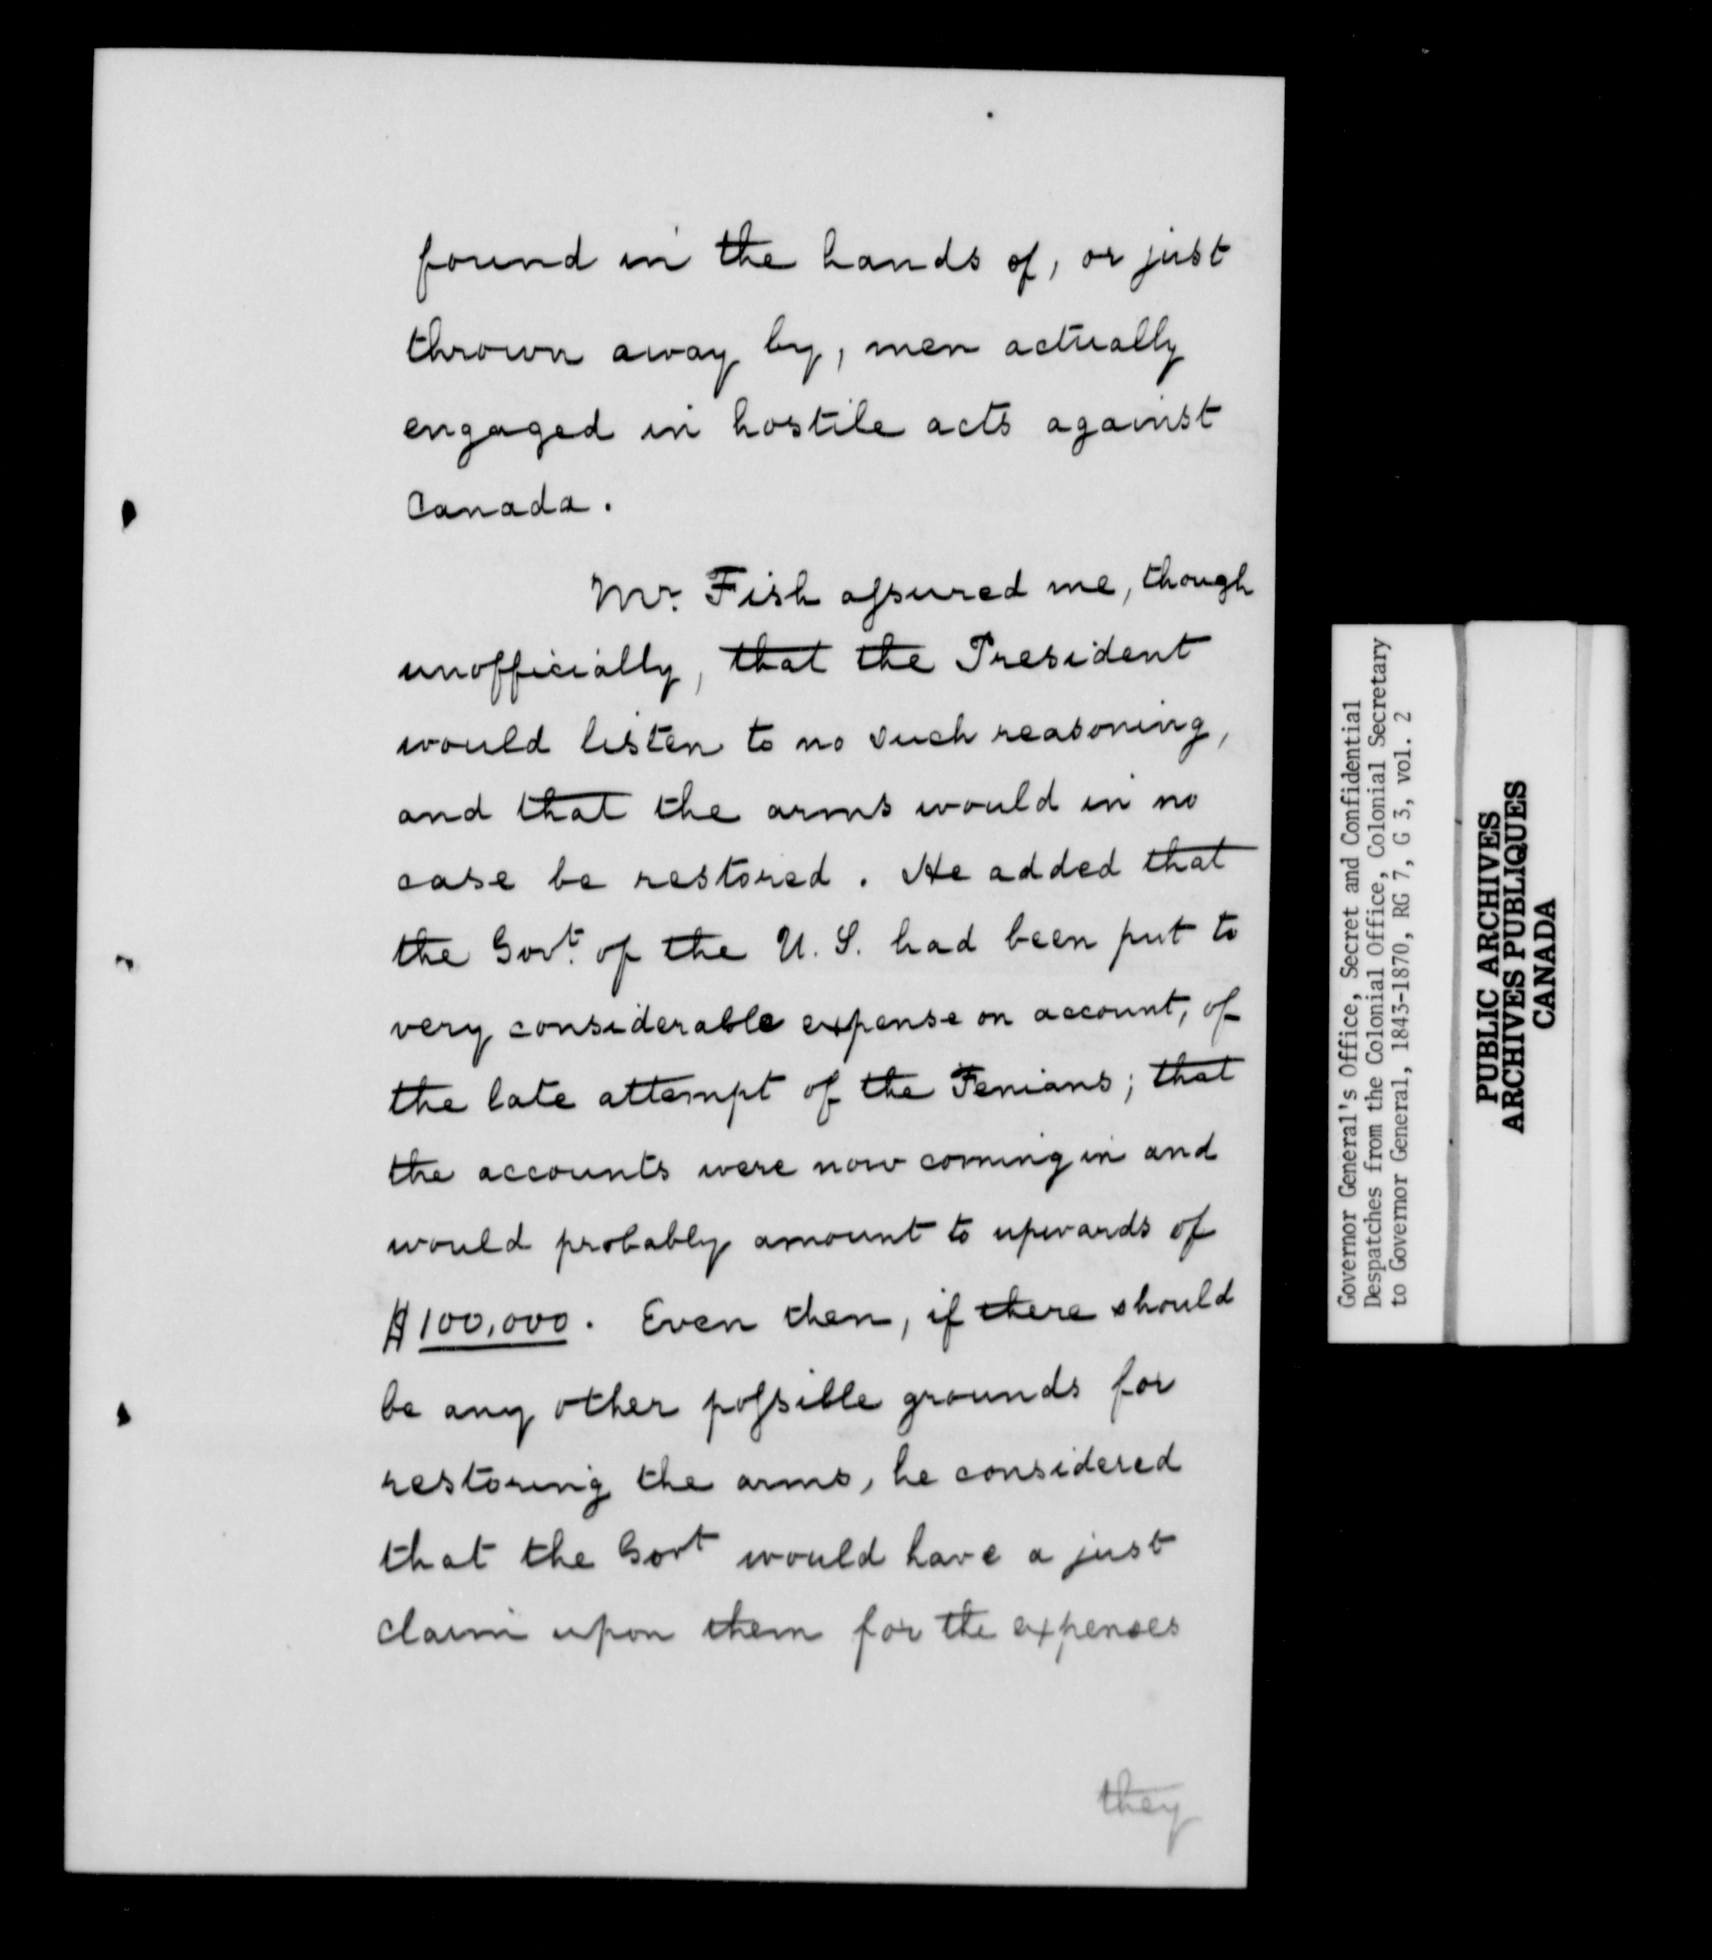 found in the hands of, or just
thrown away by, men actually
engaged in hostile acts against
Canada.
Mr. Fish assured me, though
unofficially, that the President
would listen to no such reasoning,
and that the arms would in no
case be restored. He added that
the Govt. of the U. S. had been put to
very considerable expense on account, of
the late attempt of the Fenians; that
the accounts were now coming in and
would probably amount to upwards of
$100,000. Even then, if there should
be any other possible grounds for
restoring the arms, he considered
that the Govt would have a just
claim upon them for the expenses
they
Governor General's Office, Secret and Confidential
Despatches from the Colonial Office, Colonial Secretary
to Governor General, 1843-1870, RG 7, G 3, vol. 2
PUBLIC ARCHIVES
ARCHIVES PUBLIQUES
CANADA